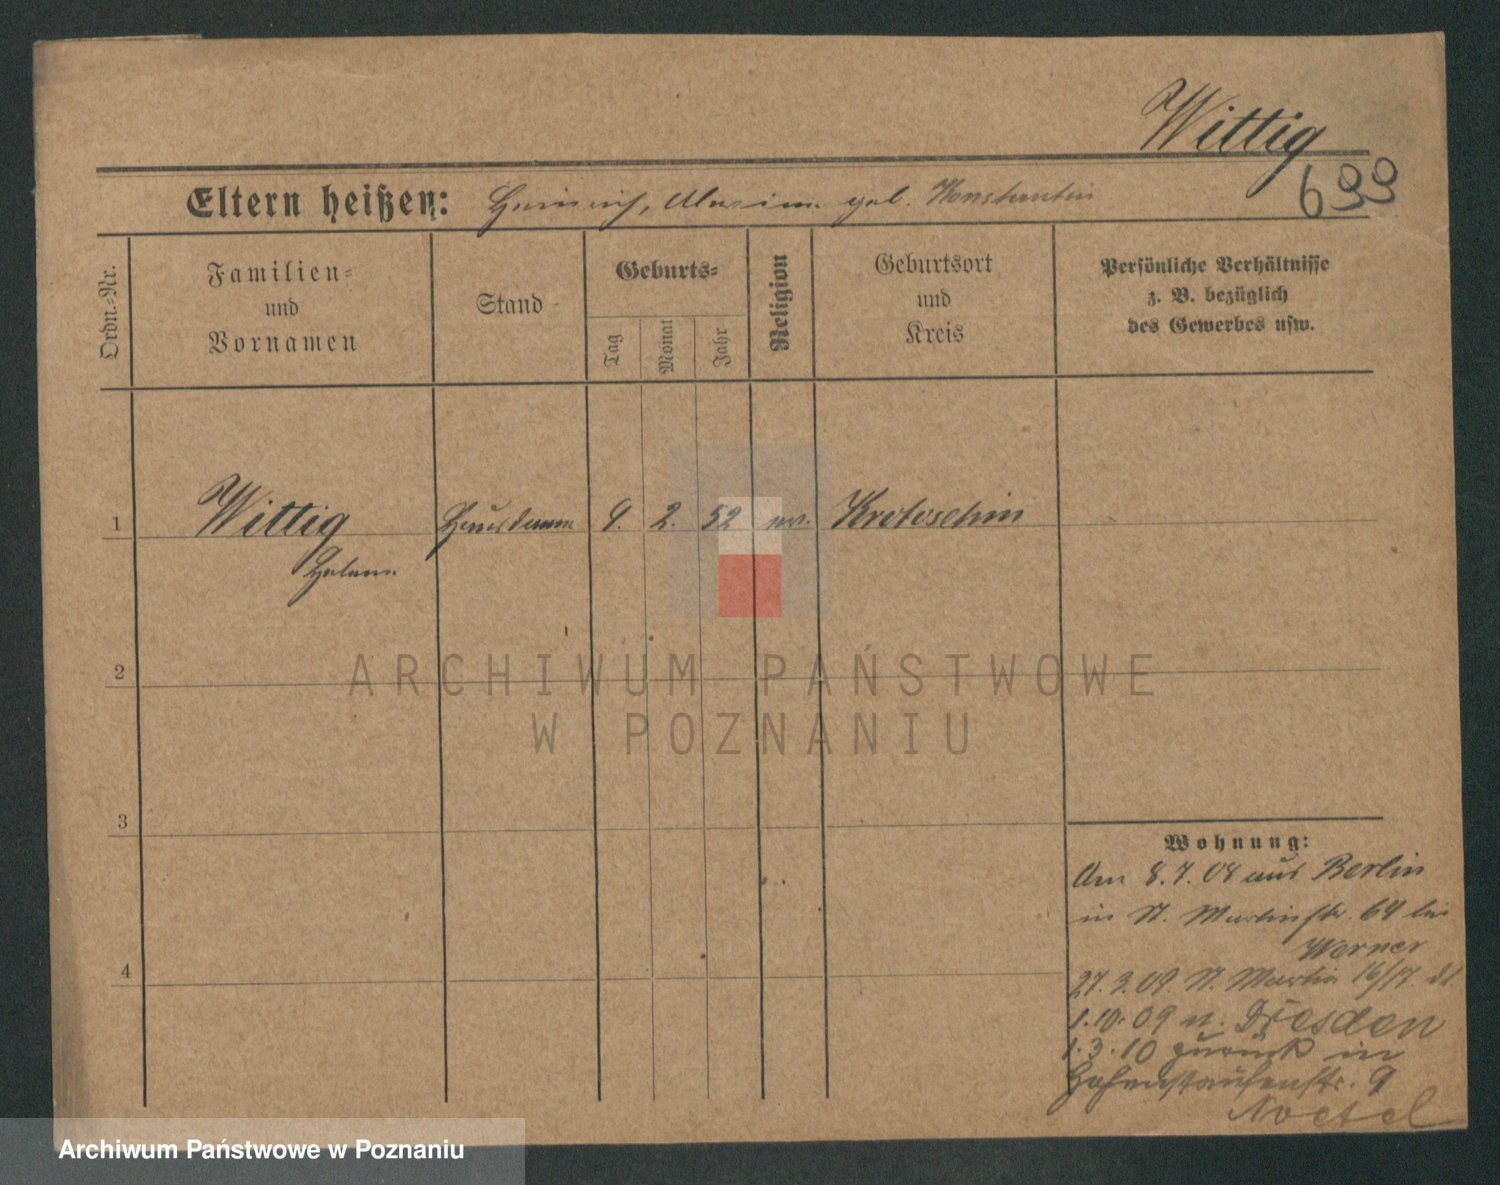 Wittig
699
Eltern heißen: Heinrich, Maxim geb. Konstantin
Ordn.-Nr.
Familien-
und
Vornamen
Stand
Geburts-
Tag
Monat
Jahr
Religion
Geburtsort
und
Kreis
Persönliche Verhältnisse
z. B. bezüglich
des Gewerbes usw.
1 Wittig Hausdame 9. 2. 52 ev. Krotoschin
Helene
2
3
4
ARCHIWUM PAŃSTWOWE
W POZNANIU
Wohnung:
Am 8.7.08 aus Berlin
in St. Martinstr. 64 bei
Werner
27.3.09. St. Martin 16/17
1.10.09 n. Dresden
1.3.10 zurück in
Hohenstaufenstr. 9
Noetel
Archiwum Państwowe w Poznaniu